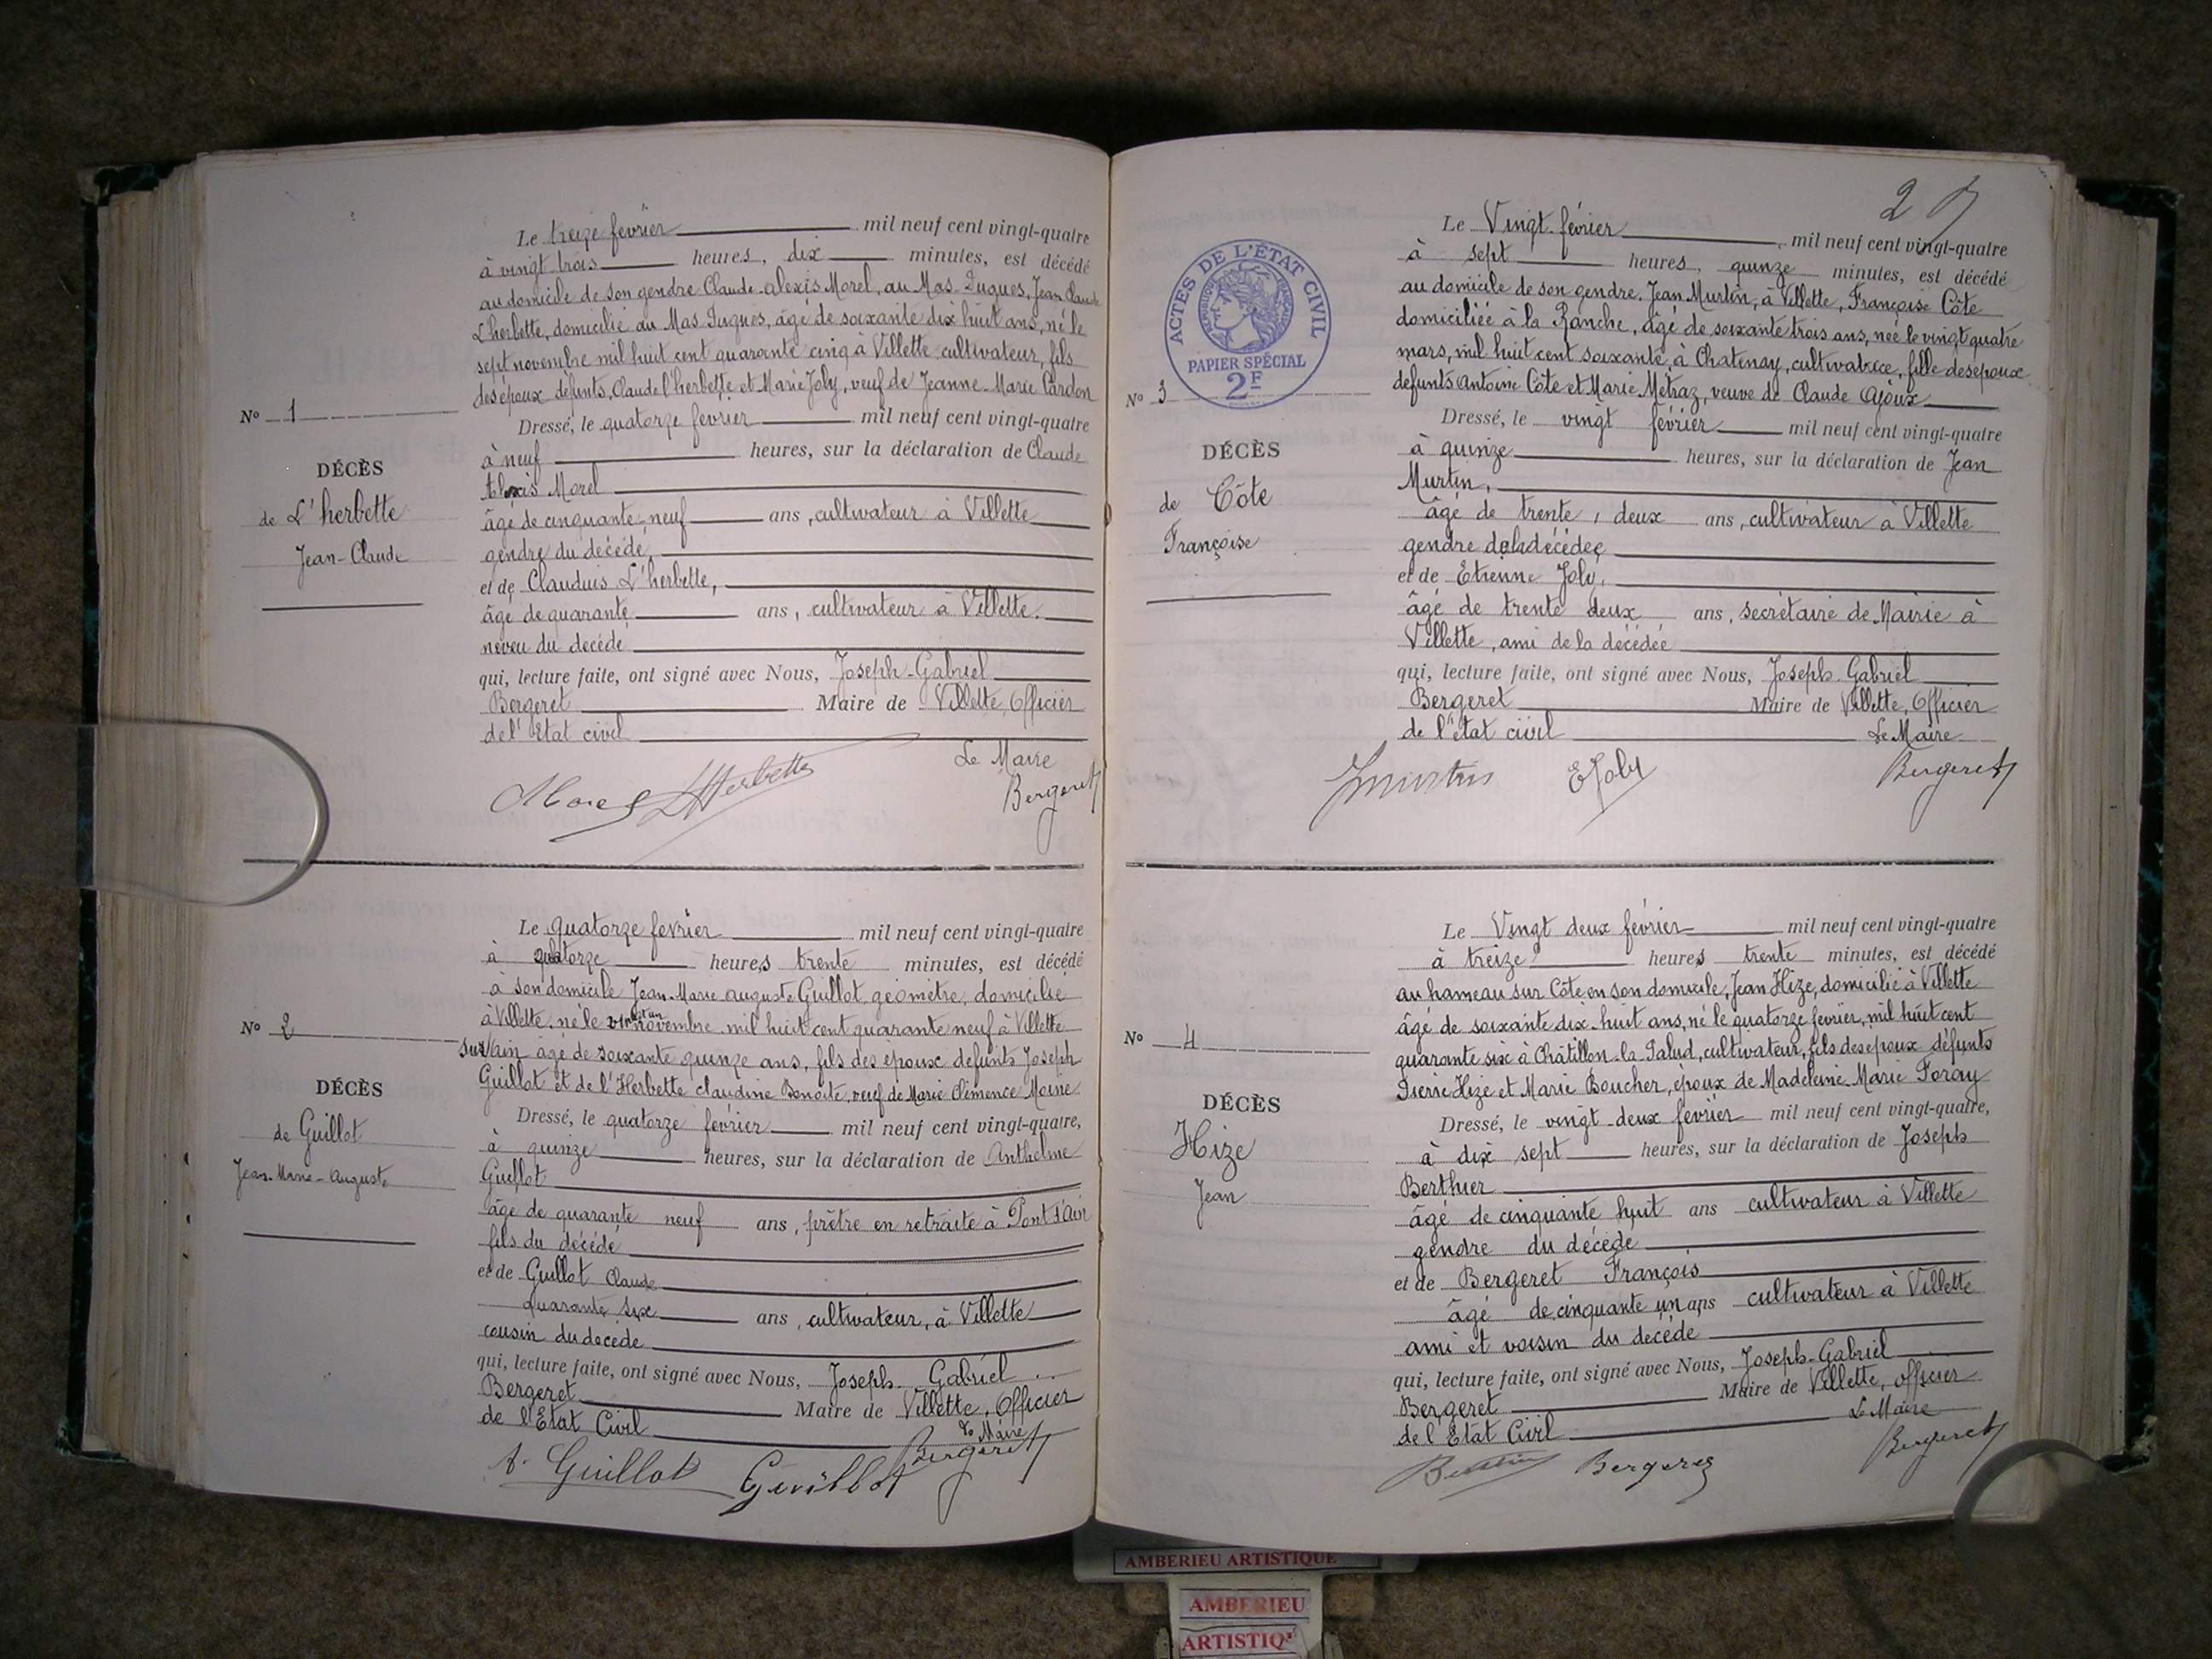 Le treize fevrier mil neuf cent vingt-quatre
à vingt trois heures, dix minutes, est décédé
au domicile de son gendre Claude-Alexis Morel, au Mas-Dugues, Jean Claude
L'herbette, domicilié au Mas Dugues, âgé de soixante dix huit ans, né le
sept novembre mil huit cent quarante cinq à Villette cultivateur, fils
des époux défunts, Claude l'herbette et Marie Joly, veuf de Jeanne-Marie Cardon
Nº 1
Dressé, le quatorze fevrier mil neuf cent vingt-quatre
à neuf heures, sur la déclaration de Claude
Alexis Morel
DÉCÈS
de L'herbette
Jean-Claude
âgé de cinquante-neuf ans, cultivateur à Villette
gendre du décédé,
et de Claudius L'herbette,
âgé de quarante ans, cultivateur à Villette.
neveu du decédé
qui, lecture faite, ont signé avec Nous, Joseph-Gabriel
Bergeret Maire de Villette, Officier
de l'Etat civil
Le Maire
CMorel LHerbette Bergeret
Le quatorze fevrier mil neuf cent vingt-quatre
à quatorze heures trente minutes, est décédé
à son domicile Jean-Marie Auguste Guillot, géomètre, domicilié
à Villette, né le vingt un novembre mil huit cent quarante neuf à Villette
Nº 2
sur Ain âgé de soixante quinze ans, fils des époux défunts Joseph
Guillot et de l'Herbette Claudine Benoite, veuf de Marie Clémence Moine
DÉCÈS
de Guillot
Jean-Marie-Auguste
Dressé, le quatorze février mil neuf cent vingt-quatre,
à quinze heures, sur la déclaration de Anthelme
Guillot
âgé de quarante neuf ans, prêtre en retraite à Pont d'Ain
fils du décédé
et de Guillot Claude
quarante six ans, cultivateur, à Villette
cousin du decédé
qui, lecture faite, ont signé avec Nous, Joseph Gabriel
Bergeret Maire de Villette, Officier
de l'Etat Civil
Le Maire
A. Guillot Guillot Bergeret
ACTES DE L'ÉTAT CIVIL
RÉPUBLIQUE FRANÇAISE
PAPIER SPÉCIAL
2F
Le Vingt février mil neuf cent vingt-quatre
à sept heures, quinze minutes, est décédé
au domicile de son gendre, Jean Murtin, à Villette, Françoise Côte
domiciliée à la Ranche, âgé de soixante trois ans, née le vingt quatre
mars, mil huit cent soixante, à Chatenay, cultivatrice, fille des époux
défunts Antoine Côte et Marie Métraz, veuve de Claude Ajoux
Nº 3
Dressé, le vingt février mil neuf cent vingt-quatre
à quinze heures, sur la déclaration de Jean
Murtin,
DÉCÈS
de Côte
Françoise
âgé de trente, deux ans, cultivateur à Villette
gendre de la décédée
et de Etienne Joly,
âgé de trente deux ans, secrétaire de Mairie à
Villette, ami de la décédée
qui, lecture faite, ont signé avec Nous, Joseph-Gabriel
Bergeret Maire de Villette, Officier
de l'état civil Le Maire
JMurtin EJoly Bergeret
Le Vingt deux février mil neuf cent vingt-quatre
à treize heures trente minutes, est décédé
au hameau sur Côte en son domicile, Jean Hize, domicilié à Villette
âgé de soixante dix-huit ans, né le quatorze fevrier, mil huit cent
Nº 4
quarante six à Châtillon-la-Palud, cultivateur, fils des époux défunts
Pierre Hize et Marie Boucher, époux de Madeleine-Marie Foray
DÉCÈS
Hize
Jean
Dressé, le vingt-deux février mil neuf cent vingt-quatre,
à dix sept heures, sur la déclaration de Joseph
Berthier
âgé de cinquante huit ans cultivateur à Villette
gendre du décédé
et de Bergeret François
âgé de cinquante un ans cultivateur à Villette
ami et voisin du decédé
qui, lecture faite, ont signé avec Nous, Joseph-Gabriel
Bergeret Maire de Villette, officier
de l'Etat Civil Le Maire
Berthier Bergeret Bergeret
AMBERIEU ARTISTIQUE
AMBERIEU
ARTISTIQ